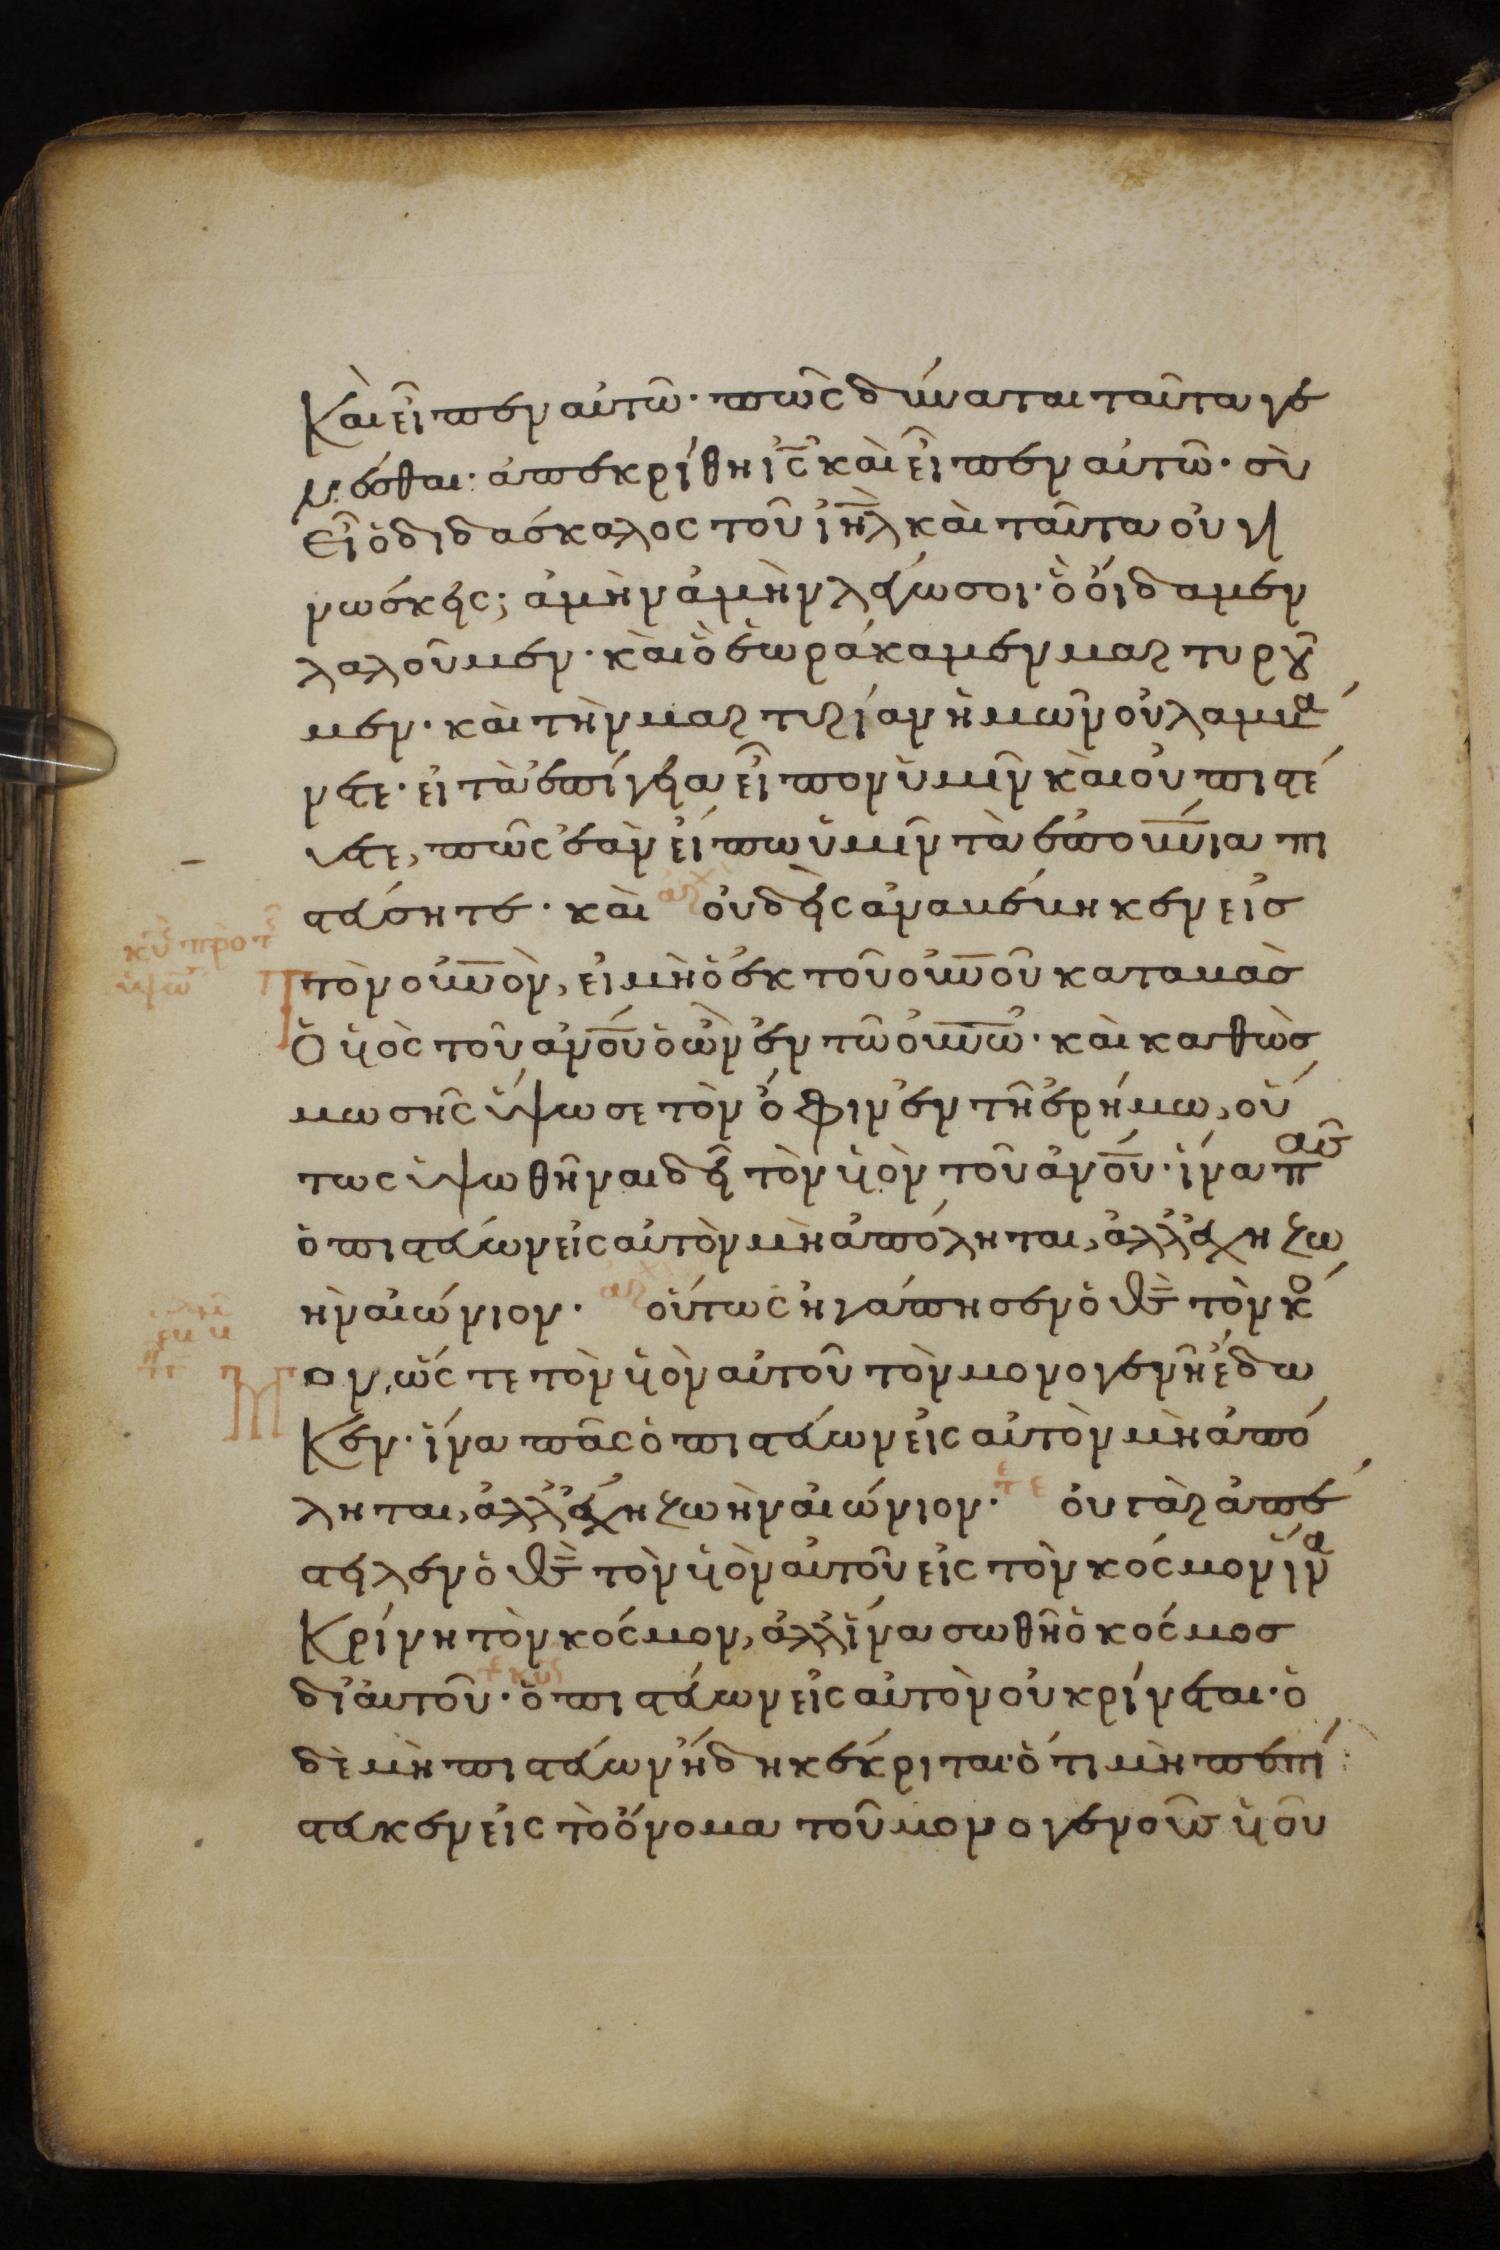 Καὶ εἶπεν αὐτῶ· πῶς δύναται ταῦτα γε
νέσθαι· ἀπεκρίθη ις καὶ εἶπεν αὐτῶ· σὺ
εἶ ὁ διδάσκαλος τοῦ ιηλ καὶ ταῦτα οὐ γι
νώσκεις; ἀμὴν ἀμὴν λέγω σοι· ὃ οἴδαμεν
λαλοῦμεν· καὶ ὃ ἑωράκαμεν μαρτυροῦ
μεν· καὶ τὴν μαρτυρίαν ἡμῶν οὐ λαμβά
νετε· εἰ τὰ ἐπίγεια εἶπον ὑμῖν καὶ οὐ πιστεύ
ετε, πῶς ἐὰν εἴπω ὑμῖν τὰ ἐπουνια πι
στεύσητε· καὶ ἀρχ οὐδεὶς ἀναβέβηκεν εἰς
τὸν ουνον, εἰ μὴ ὁ ἐκ τοῦ ουνου καταβὰς
Ὁ υἱὸς τοῦ ανου ὁ ὢν ἐν τῶ ουνω· καὶ καθὼς
μωσῆς ὕψωσε τὸν ὄφιν ἐν τῆ ἐρήμω, οὕ
τως ὑψωθῆναι δεῖ τὸν υἱὸν τοῦ ανου· ἵνα πᾶς
ὁ πιστεύων εἰς αὐτὸν μὴ ἀπόληται, ἀλλ' ἔχη ζω
ὴν αἰώνιον· ἀρχ οὕτως ἠγάπησεν ὁ θς τὸν κό
σμον, ὥστε τὸν υἱὸν αὐτοῦ τὸν μονογενῆ ἔδω
Κεν· ἵνα πᾶς ὁ πιστεύων εἰς αὐτὸν μὴ ἀπό
ληται, ἀλλ' ἔχη ζωὴν αἰώνιον· οὐ γὰρ ἀπέ
στειλεν ὁ θς τὸν υἱὸν αὐτοῦ εἰς τὸν κόσμον ἵνα
Κρίνη τὸν κόσμον, ἀλλ' ἵνα σωθῆ ὁ κόσμος
δι' αὐτοῦ· ὁ πιστεύων εἰς αὐτὸν οὐ κρίνεται· ὁ
δὲ μὴ πιστεύων ἤδη κέκριται· ὅτι μὴ πεπί
στευκεν εἰς τὸ ὄνομα τοῦ μονογενοῦς υἱοῦ